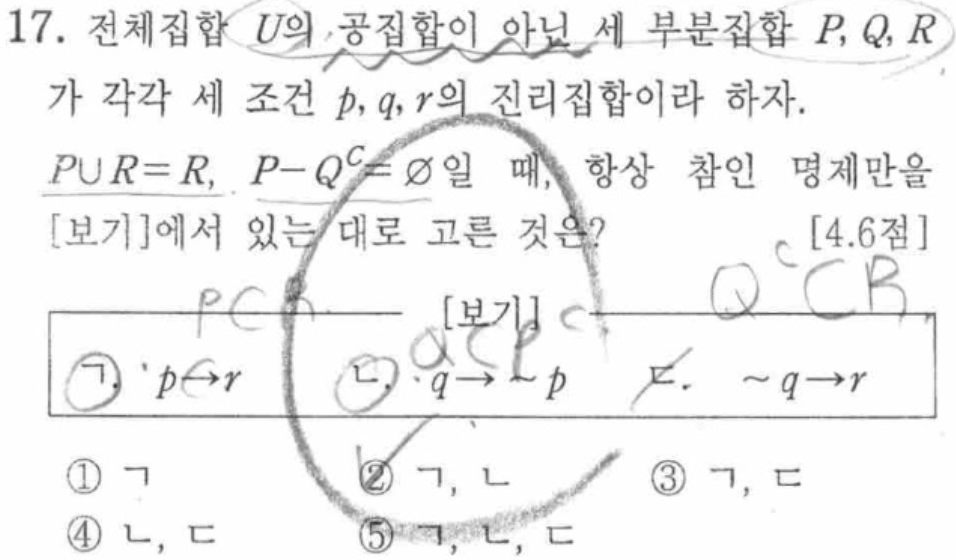 17. 전체집합 U의 공집합이 아닌 세 부분집합 P, Q, R
가 각각 세 조건 p, q, r의 진리집합이라 하자.
P∪R=R, P-Q^C=∅일 때, 항상 참인 명제만을
[보기]에서 있는 대로 고른 것은? [4.6점]
Q^C⊂R
P⊂R
[보기]
Q⊂P^C
ㄱ. p→r ㄴ. q→~p ㄷ. ~q→r
① ㄱ ② ㄱ, ㄴ ③ ㄱ, ㄷ
④ ㄴ, ㄷ ⑤ ㄱ, ㄴ, ㄷ